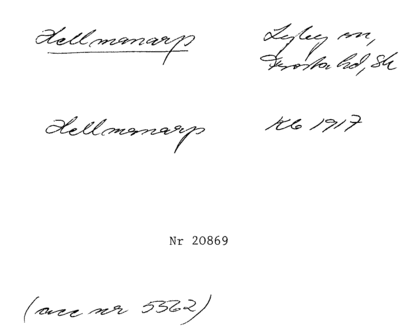 Hellmanarp Lyby sn,
Frosta hd, Sk
Hellmanarp Kb 1917
Nr 20869
(acc nr 5562)